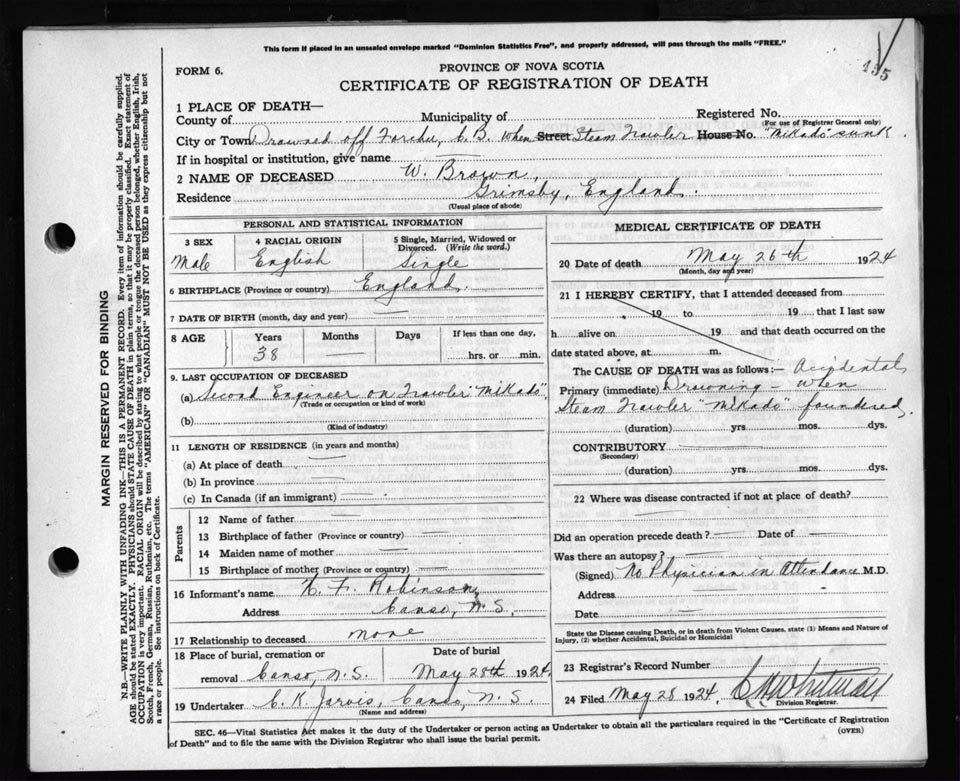 This form if placed in an unsealed envelope marked "Dominion Statistics Free", and properly addressed, will pass through the mails "FREE."
155
FORM 6.
PROVINCE OF NOVA SCOTIA
CERTIFICATE OF REGISTRATION OF DEATH
1 PLACE OF DEATH—
County of Municipality of Registered No.
(For use of Registrar General only)
City or Town Drowned off Forchu, C.B. when Street Steam Trawler House No. "Mikado" sunk.
If in hospital or institution, give name —
2 NAME OF DECEASED W. Brown,
Residence Grimsby, England.
(Usual place of abode)
PERSONAL AND STATISTICAL INFORMATION
3 SEX 4 RACIAL ORIGIN 5 Single, Married, Widowed or Divorced. (Write the word.)
Male English Single
6 BIRTHPLACE (Province or country) England.
7 DATE OF BIRTH (month, day and year) —
8 AGE Years Months Days If less than one day,
38 — hrs. or min.
9. LAST OCCUPATION OF DECEASED
(a) Second Engineer on Trawler "Mikado"
(Trade or occupation or kind of work)
(b)
(Kind of industry)
11 LENGTH OF RESIDENCE (in years and months)
(a) At place of death —
(b) In province —
(c) In Canada (if an immigrant) —
Parents
12 Name of father —
13 Birthplace of father (Province or country) —
14 Maiden name of mother —
15 Birthplace of mother (Province or country) —
16 Informant's name F. Robinson,
Address Canso, N.S.
17 Relationship to deceased none
18 Place of burial, cremation or Date of burial
removal Canso, N.S. May 28th 1924.
19 Undertaker C. K. Jarvis, Canso, N.S.
(Name and address)
MEDICAL CERTIFICATE OF DEATH
20 Date of death May 26th 1924
(Month, day and year)
21 I HEREBY CERTIFY, that I attended deceased from
19 to 19 that I last saw
h alive on 19 and that death occurred on the
date stated above, at m.
The CAUSE OF DEATH was as follows:— Accidental
Primary (immediate) Drowning — when
Steam Trawler "Mikado" foundered.
(duration) yrs. mos. dys.
CONTRIBUTORY —
(Secondary)
(duration) yrs. mos. dys.
22 Where was disease contracted if not at place of death?
—
Did an operation precede death? — Date of —
Was there an autopsy? —
(Signed) No Physician in Attendance M.D.
Address
Date —
State the Disease causing Death, or in death from Violent Causes, state (1) Means and Nature of
Injury, (2) whether Accidental, Suicidal or Homicidal
23 Registrar's Record Number
24 Filed May 28 1924, Whitman
Division Registrar.
SEC. 46—Vital Statistics Act makes it the duty of the Undertaker or person acting as Undertaker to obtain all the particulars required in the "Certificate of Registration
of Death" and to file the same with the Division Registrar who shall issue the burial permit.
(OVER)
MARGIN RESERVED FOR BINDING
N.B.—WRITE PLAINLY WITH UNFADING INK—THIS IS A PERMANENT RECORD. Every item of information should be carefully supplied.
AGE should be stated EXACTLY. PHYSICIANS should STATE CAUSE OF DEATH in plain terms, so that it may be properly classified. Exact statement of
OCCUPATION is very important. RACIAL ORIGIN will be described by stating to what people or tongue the deceased person belonged, whether English, Irish,
Scotch, French, German, Russian, Ruthenian, etc. The terms "AMERICAN" or "CANADIAN" MUST NOT BE USED as they express citizenship but not
a race or people. See instructions on back of Certificate.